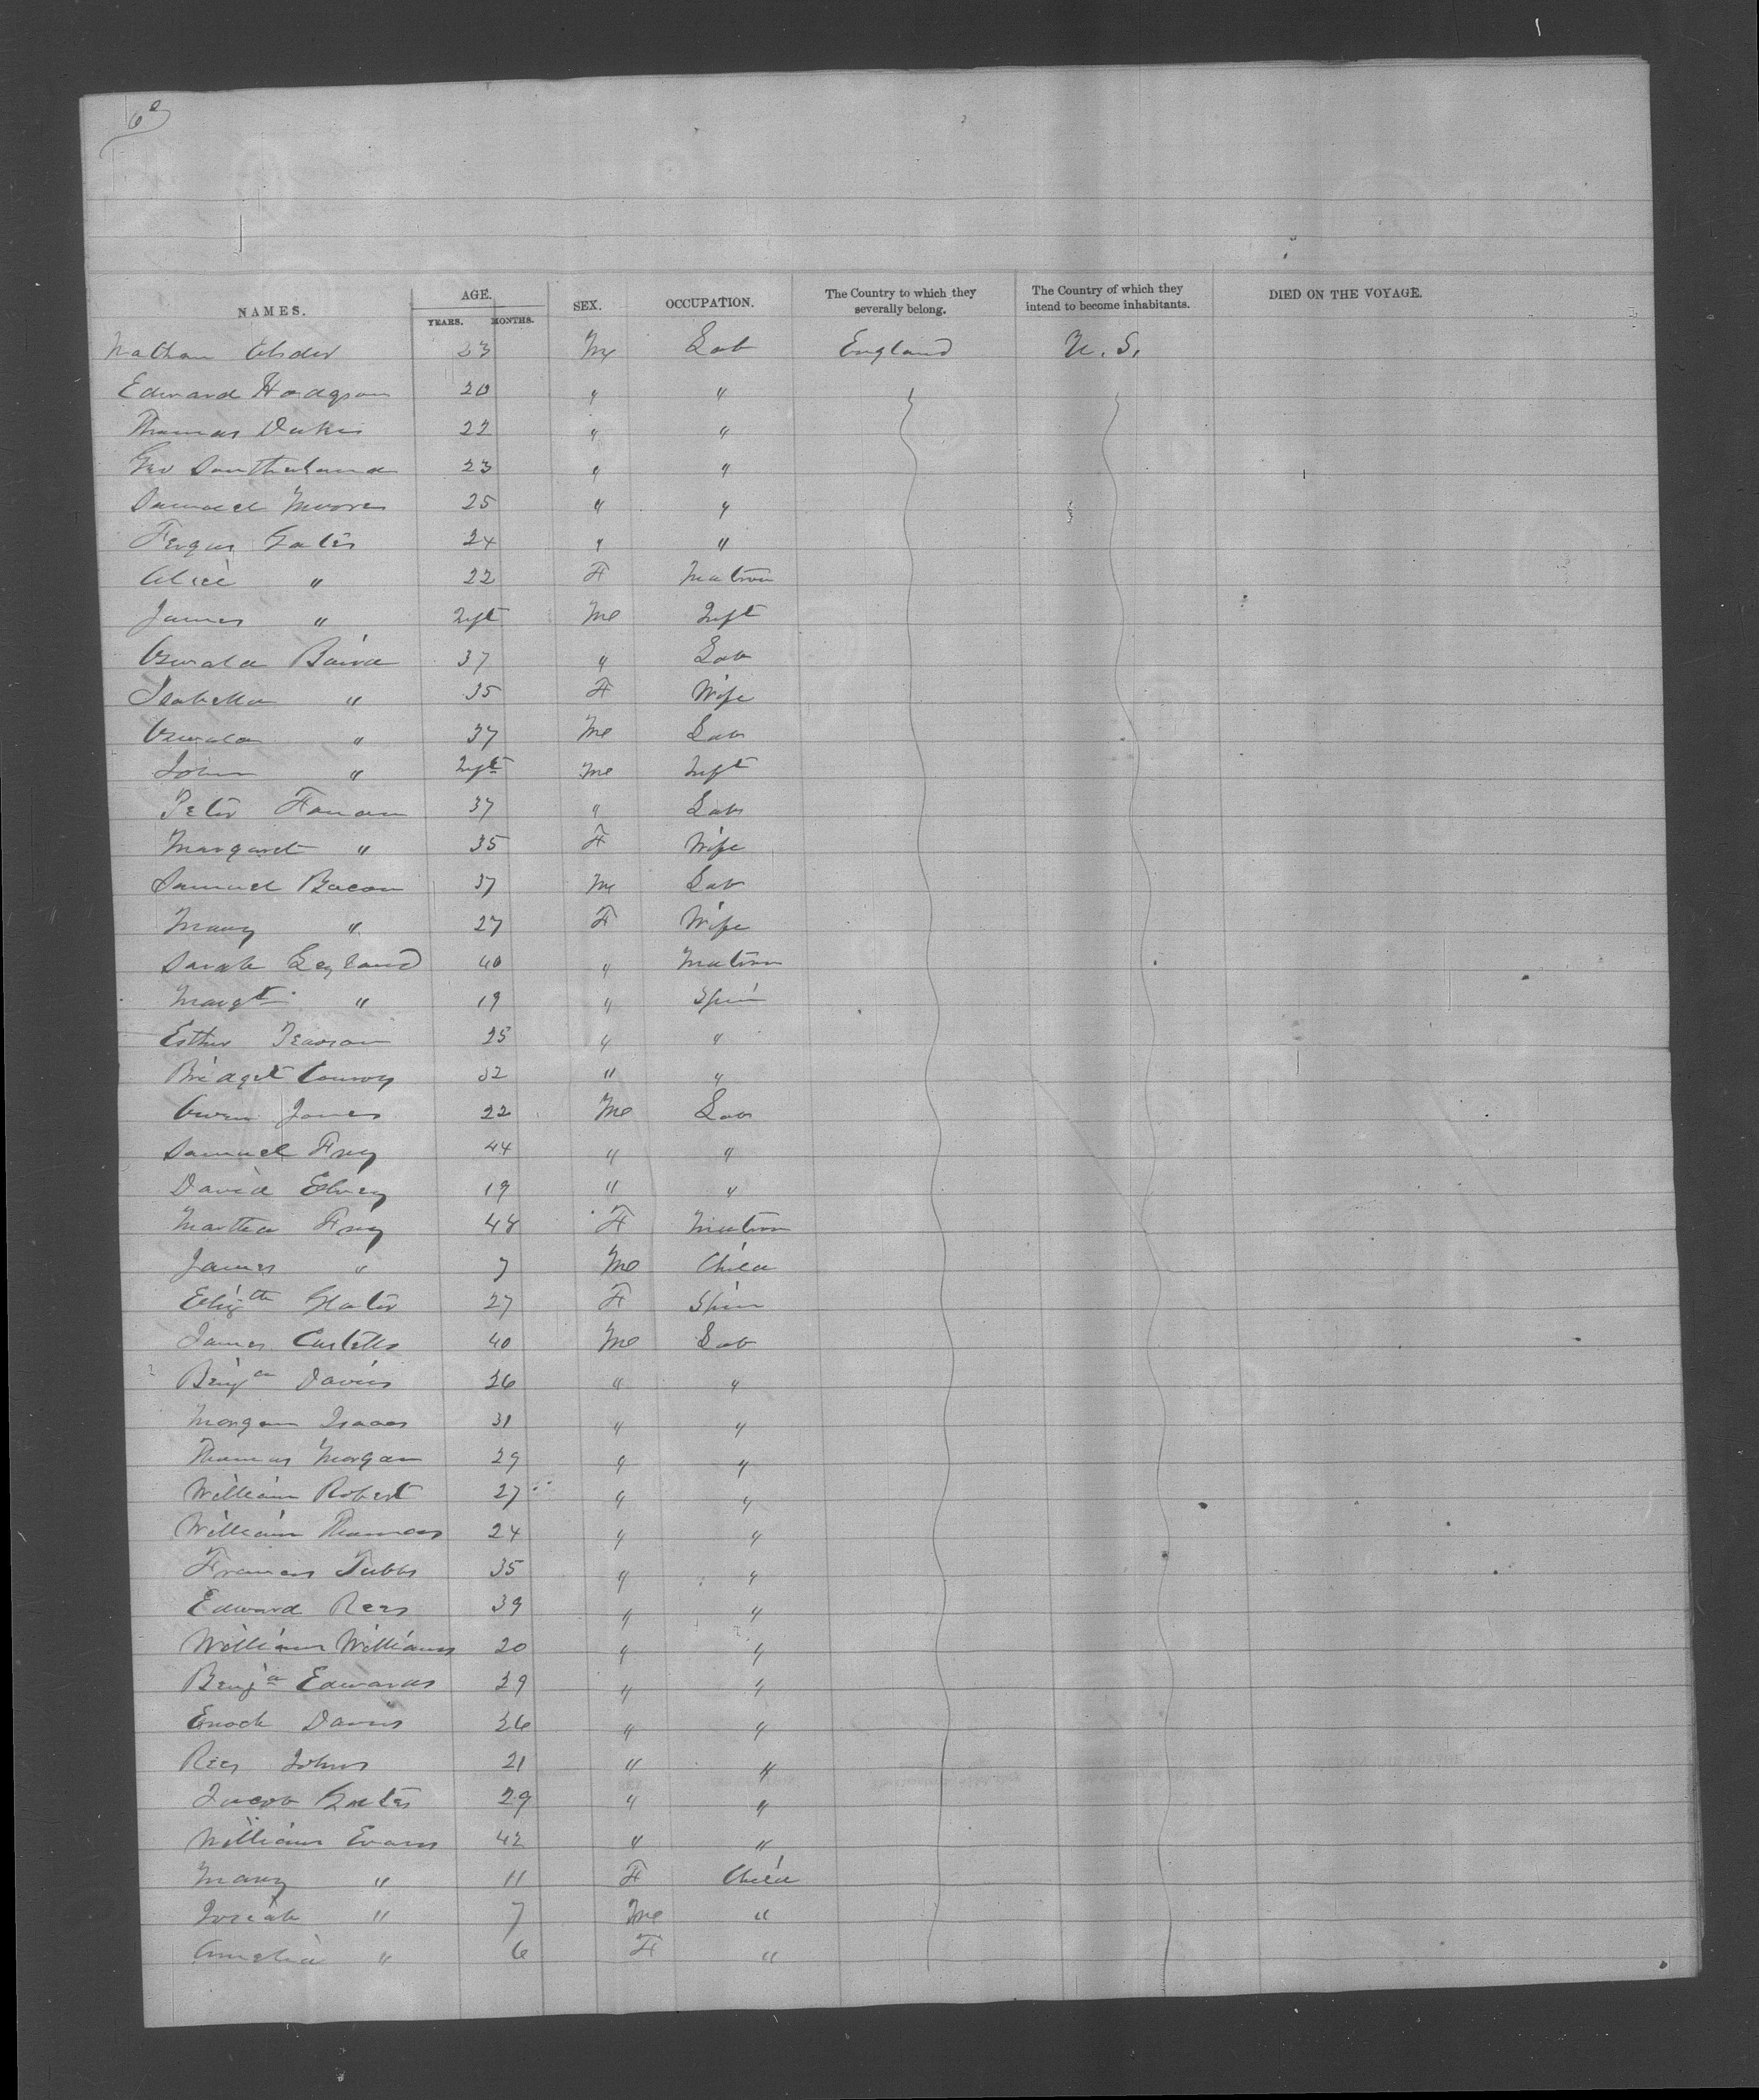 6
NAMES. AGE. YEARS. MONTHS. SEX. OCCUPATION. The Country to which they severally belong. The Country of which they intend to become inhabitants. DIED ON THE VOYAGE.
Nathan 23 M Lab England U. S.
Edward Hodgson 20 " "
Thomas 22 " "
Geo Southerland 23 " "
Samuel Moore 25 " "
Fergus Gates 24 " "
Alice " 22 F Matron
James " Inft Me Inft
Oswald Baird 37 " Lab
Isabella " 35 F Wife
Oswald " 37 Me Lab
John " Inft Me Inft
Peter 37 " Lab
Margaret " 35 F Wife
Samuel Bacon 37 M Lab
Mary " 27 F Wife
Sarah Leyland 40 " Matron
Margt " 19 " Spin
Esther Pearson 25 " "
Bridget Conroy 32 " "
Owen Jones 22 Me Lab
Samuel Frey 44 " "
David 19 " "
Martha Frey 48 F Matron
James " 7 Me Child
Elizth Slater 27 F Spin
James 40 Me Lab
Benja Davies 26 " "
Morgan Isaacs 31 " "
Thomas Morgan 29 " "
William Robert 27 " "
William Thomas 24 " "
Francis Tubbs 35 " "
Edward Rees 39 " "
William Williams 20 " "
Benja Edwards 29 " "
Enoch Davies 26 " "
Rees Johns 21 " "
Jacob 29 " "
William Evans 42 " "
Mary " 11 F Child
Josiah " 7 Me "
Amelia " 6 F "